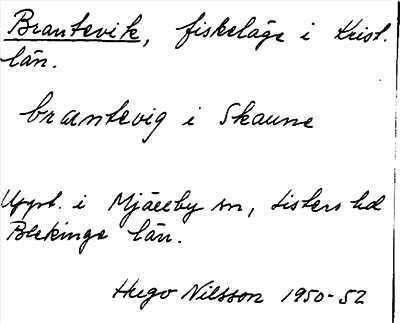 Brantevik, fiskeläge i Krist.
län.
brantevig i Skaune
Uppt. i Mjällby sn, Listers hd
Blekinge län.
Hugo Nilsson 1950-52